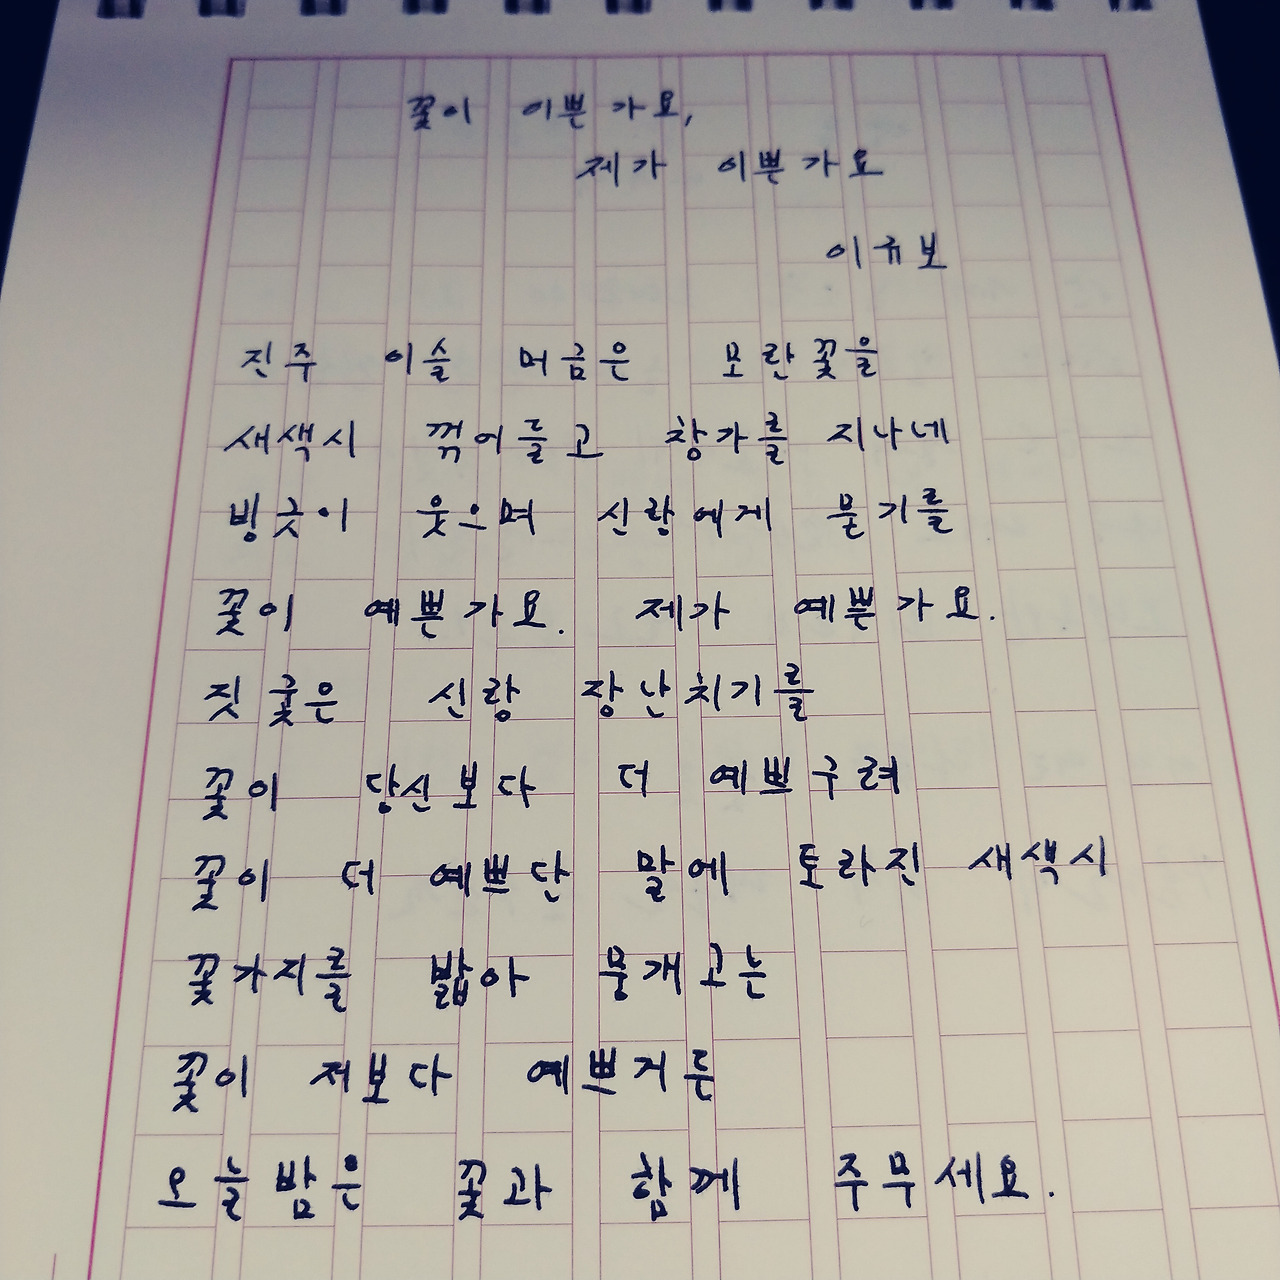 꽃이 이쁜가요,
제가 이쁜가요
이규보
진주 이슬 머금은 모란꽃을
새색시 꺾어들고 창가를 지나네
빙긋이 웃으며 신랑에게 묻기를
꽃이 예쁜가요. 제가 예쁜가요.
짓궂은 신랑 장난치기를
꽃이 당신보다 더 예쁘구려
꽃이 더 예쁘단 말에 토라진 새색시
꽃가지를 밟아 뭉개고는
꽃이 저보다 예쁘거든
오늘밤은 꽃과 함께 주무세요.